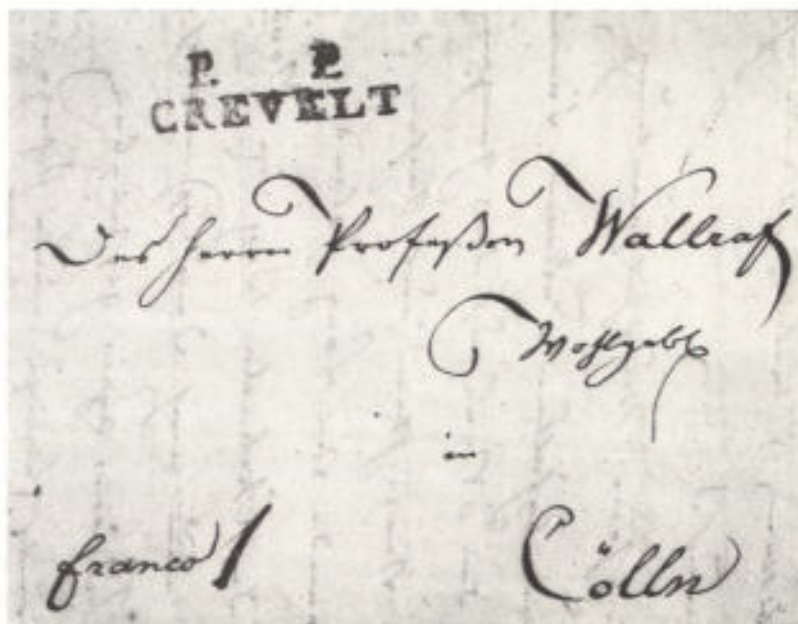 P. P.
CREVELT
Des Herrn Profeßor Wallraf
Wohlgeb
in
franco
Cölln